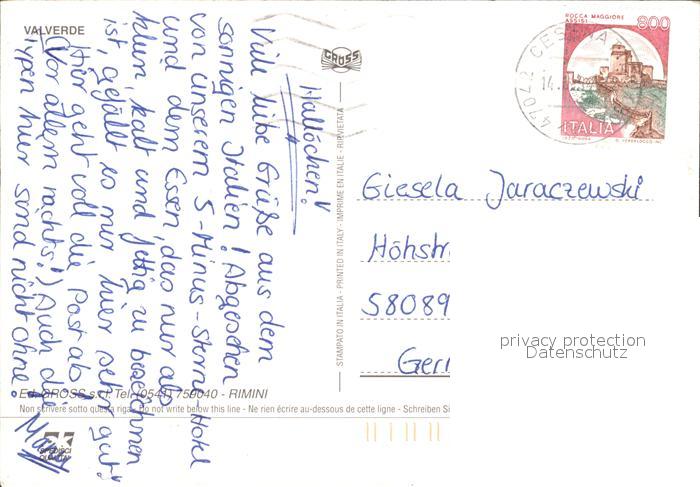 VALVERDE
Hallöchen!
Viele liebe Grüße aus dem
sonnigen Italien! Abgesehen
von unserem 5-Minus-Sterne-Hotel
und dem Essen, das nur als
klein, kalt und fettig zu bezeichnen
ist, gefällt es mir hier sehr gut!
Hier geht voll die Post ab!
(Vor allem nachts!) Auch die
Typen hier sind nicht ohne!
Ed. GROSS s.r.l. Tel. (0541) 759040 - RIMINI
Non scrivere sotto questa riga - Do not write below this line - Ne rien écrire au-dessous de cette ligne - Schreiben Si
GROSS
STAMPATO IN ITALIA - PRINTED IN ITALY - IMPRIME EN ITALIE - RIP. VIETATA
ROCCA MAGGIORE
ASSISI
800
ITALIA
47042 CESENA
14.
Giesela Jaraczewski
Höhstr
58089
Ger
privacy protection
Datenschutz